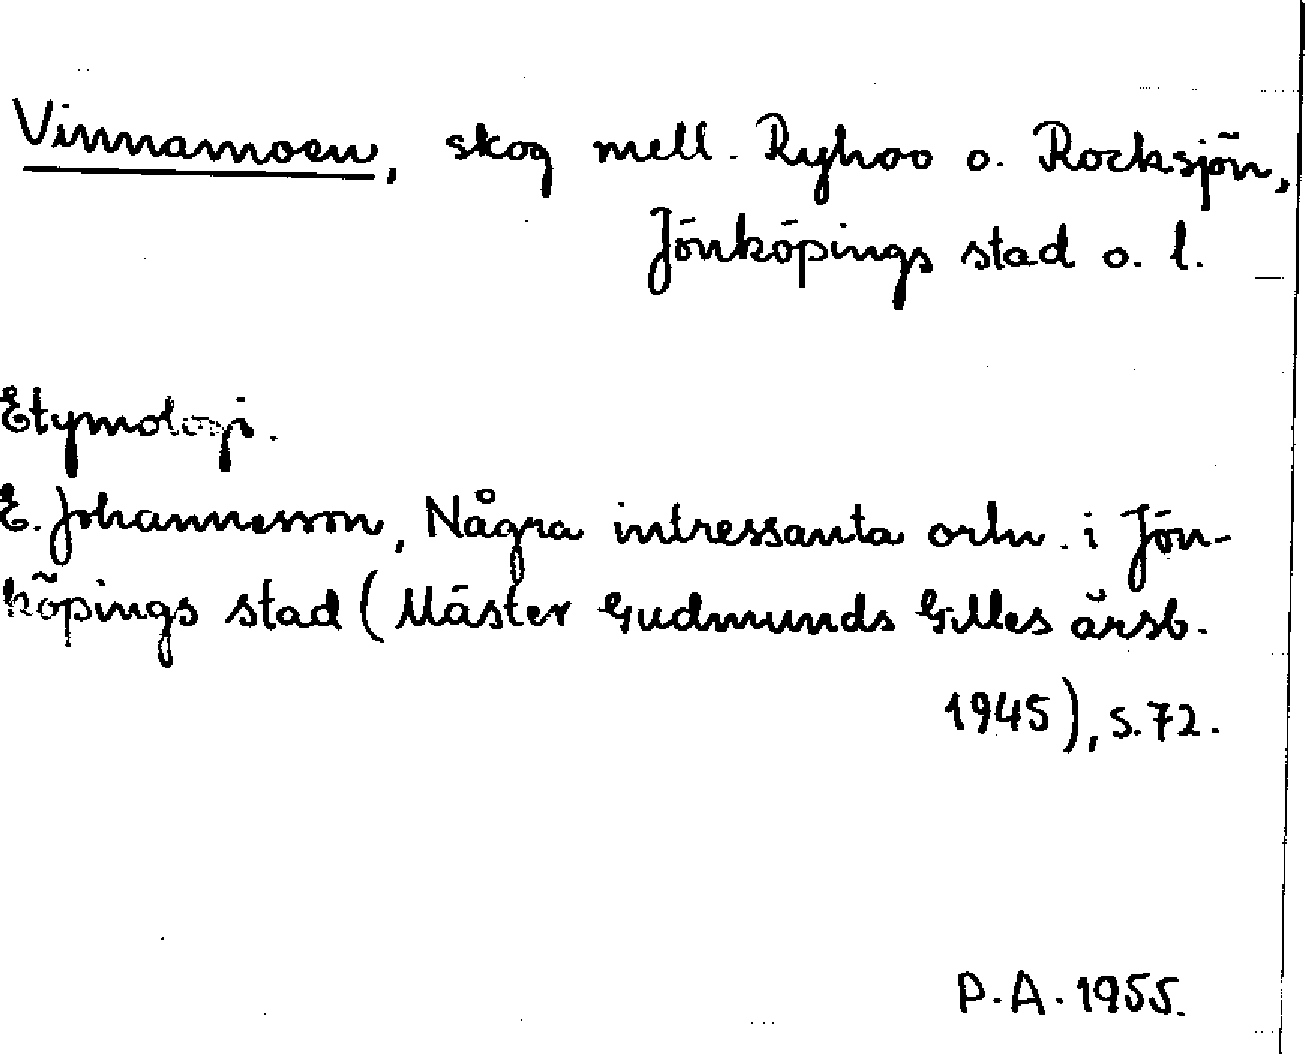 Vinnamoen, skog mell. Ryhov o. Rocksjön,
Jönköpings stad o. l.
Etymologi.
E. Johannesson, Några intressanta ortn. i Jön-
köpings stad (Mäster Gudmunds Gilles årsb.
1945), s. 72.
P.A. 1955.